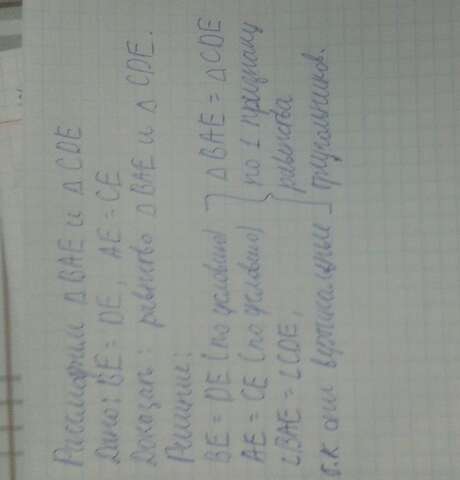 Рассмотрим △ BAE и △ CDE
Дано: BE = DE, AE = CE
Доказать: равенство △ BAE и △ CDE.
Решение:
BE = DE (по условию) } △ BAE = △ CDE
AE = CE (по условию) по 1 признаку
∠BAE = ∠CDE, равенства
т.к они вертикальные треугольников.